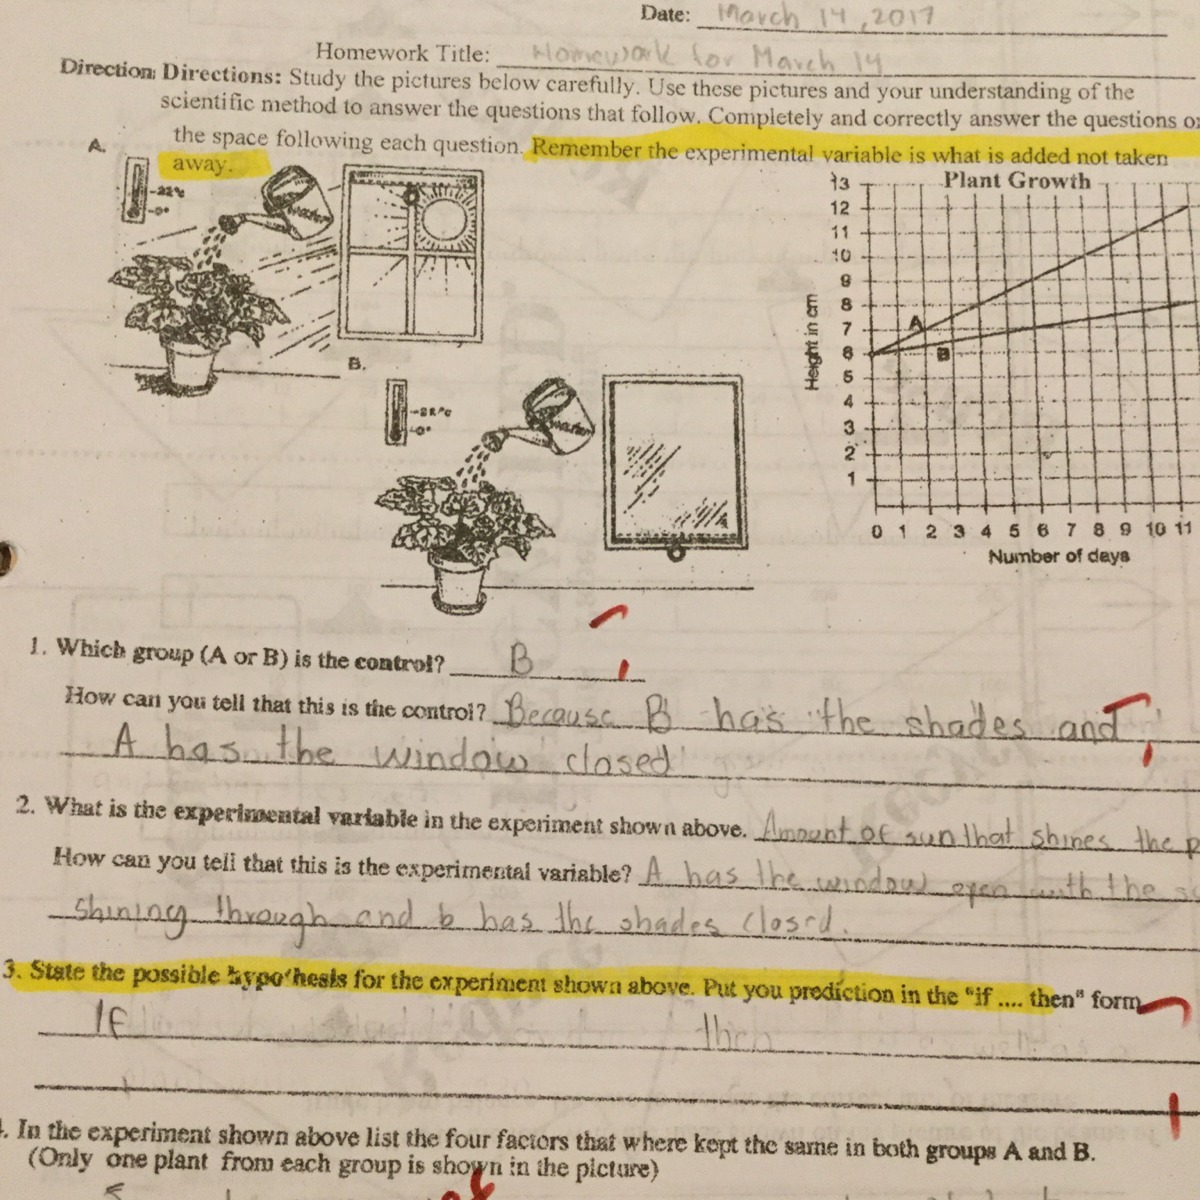 Date: March 14, 2017
Homework Title: Homework for March 14
Direction: Directions: Study the pictures below carefully. Use these pictures and your understanding of the
scientific method to answer the questions that follow. Completely and correctly answer the questions
the space following each question. Remember the experimental variable is what is added not taken
away.
A.
-22°c
-0°
water
B.
-0°
water
Plant Growth
13
12
11
10
9
8
7
6
5
4
3
2
1
Height in cm
A
B
0 1 2 3 4 5 6 7 8 9 10 11
Number of days
1. Which group (A or B) is the control? B
How can you tell that this is the control? Because B has the shades and
A has the window closed
2. What is the experimental variable in the experiment shown above. Amount of sun that shines the
How can you tell that this is the experimental variable? A has the window open with the
shining through and b has the shades closed.
3. State the possible hypothesis for the experiment shown above. Put you prediction in the "if .... then" form
If then
. In the experiment shown above list the four factors that where kept the same in both groups A and B.
(Only one plant from each group is shown in the picture)